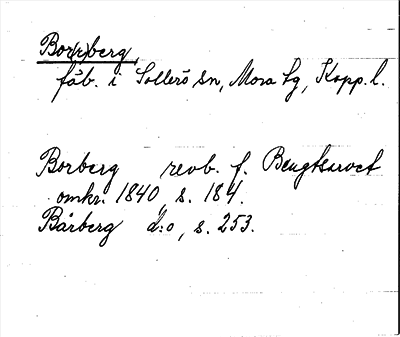 Bor(r)berg,
fäb. i Sollerö sn, Mora tg, Kopp. l.
Borberg revb. f. Bengtsarvet
omkr. 1840, s. 184.
Bårberg d:o, s. 253.